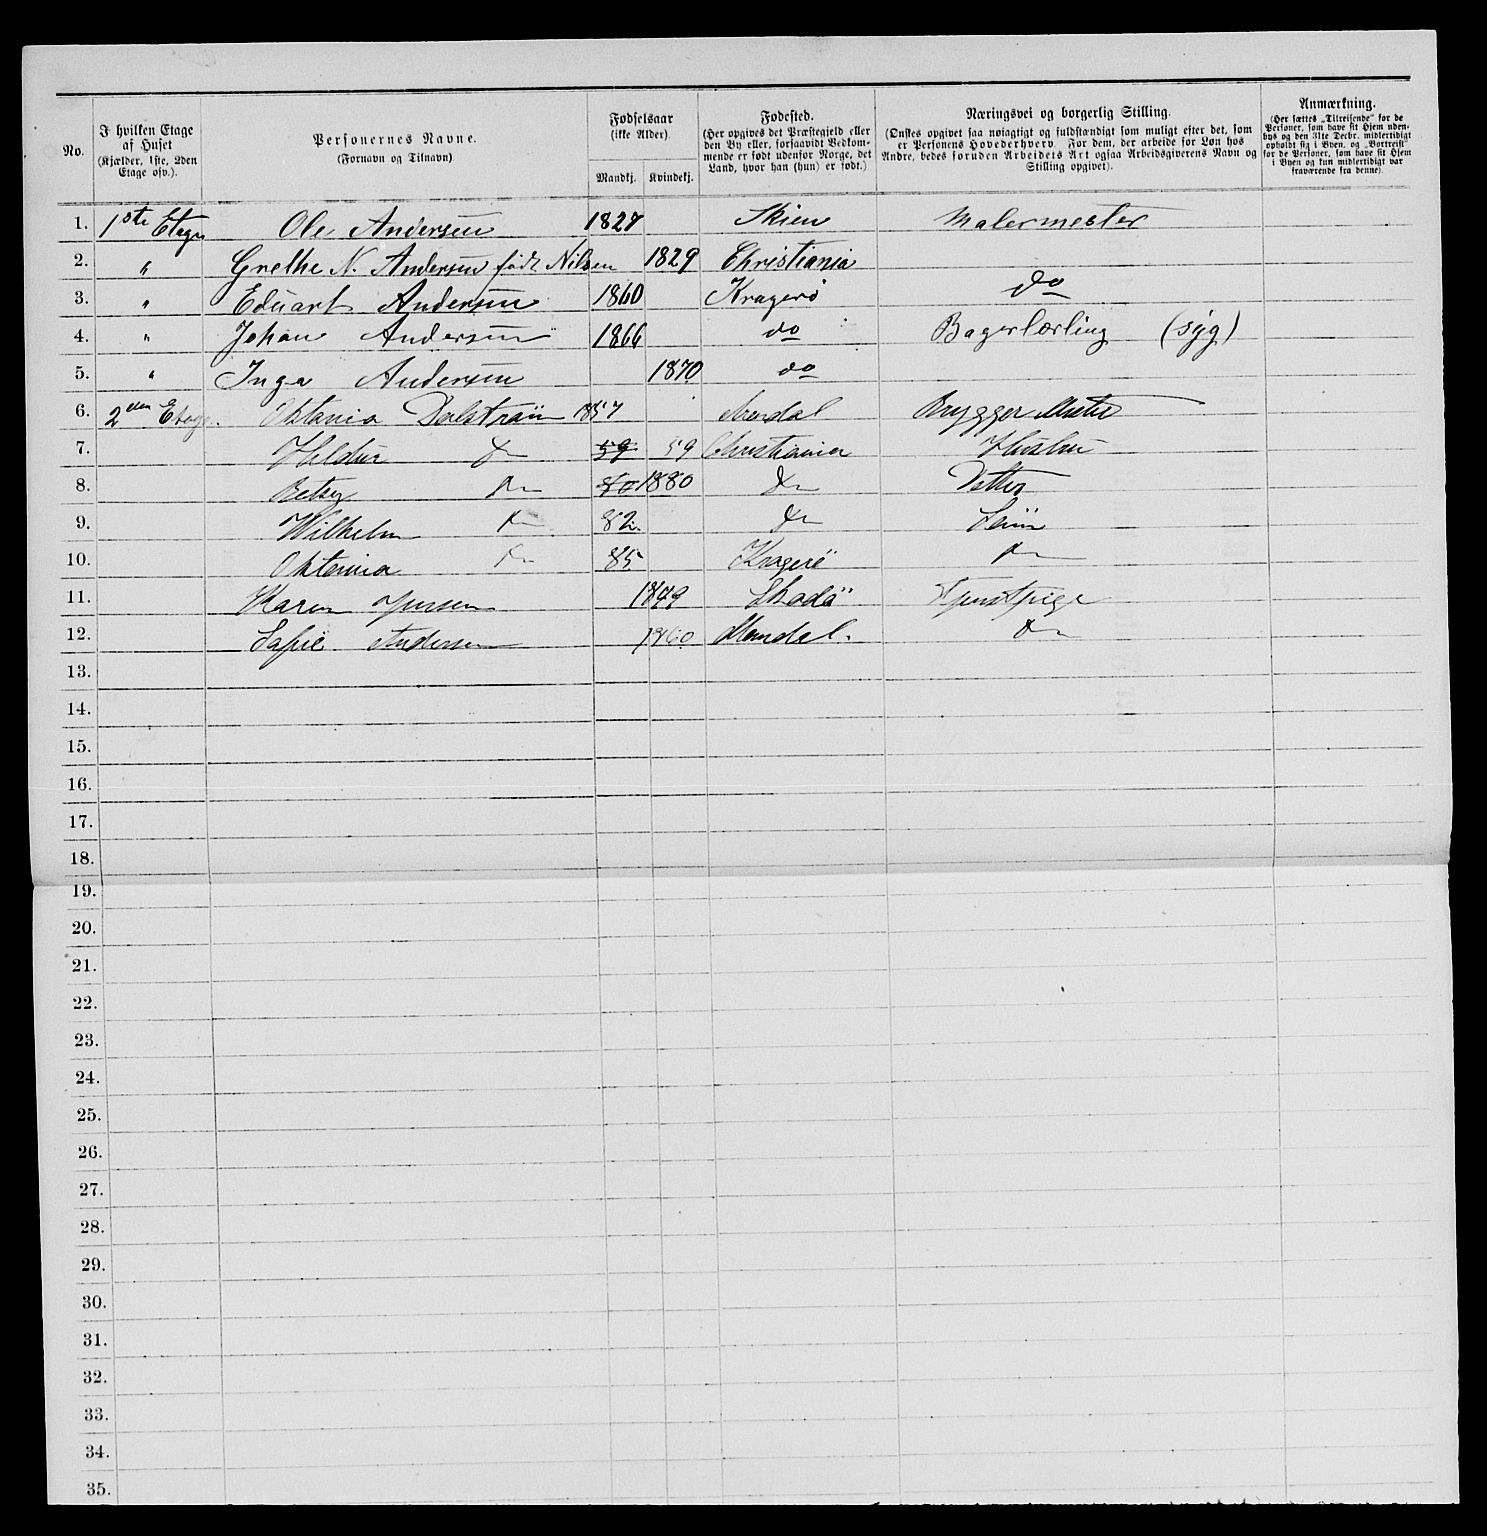 No.
I hvilken Etage af Huset (Kjælder, 1ste, 2den Etage osv.).
Personernes Navne. (Fornavn og Tilnavn)
Fødselsaar (ikke Alder).
Mandkj. Kvindekj.
Fødested. (Her opgives det Præstegjeld eller den By eller, forsaavidt Vedkommende er født udenfor Norge, det Land, hvor han (hun) er født.)
Næringsvei og borgerlig Stilling. (Ønskes opgivet saa nøiagtigt og fuldstændigt som muligt efter det, som er Personens Hovederhverv. For dem, der arbeide for Løn hos Andre, bedes foruden Arbeidets Art ogsaa Arbeidsgiverens Navn og Stilling opgivet).
Anmærkning. (Her sættes „Tilreisende" for de Personer, som have sit Hjem udenbys og den 31te Decbr. midlertidigt opholdt sig i Byen, og „Bortreist" for de Personer, som have sit Hjem i Byen og kun midlertidigt var fraværende fra denne).
1. 1ste Etage Ole Andersen 1827 Skien Malermester
2. " Grethe N. Andersen født Nilsen 1829 Christiania
3. " Eduart Andersen 1860 Kragerø do
4. " Johan Andersen 1866 do Bagerlærling (syg)
5. " Inga Andersen 1870 do
6. 2den Etage. Oktavia Dalström 1857 Arendal Brygger Mester
7. Hildur do 59 59 Christiania Hustru
8. Betsy do 80 1880 do Datter
9. Wilhelm do 82. do Sön
10. Oktavia do 85. Kragerö do
11. Karen Jensen 1849 Skadö Tjenstpige
12. Sofie Andersen 1860 Mandal. do
13.
14.
15.
16.
17.
18.
19.
20.
21.
22.
23.
24.
25.
26.
27.
28.
29.
30.
31.
32.
33.
34.
35.